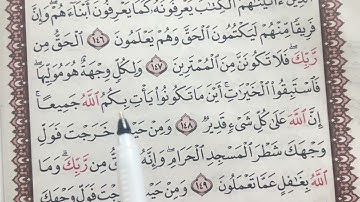 ءاتينهم الكتب يعرفونه كما يعرفون أبناءهم وإن
فريقا منهم ليكتمون الحق وهم يعلمون ١٤٦ الحق من
ربك فلا تكونن من الممترين ١٤٧ ولكل وجهة هو موليها
فاستبقوا الخيرت أين ما تكونوا يأت بكم الله جميعا
إن الله على كل شىء قدير ١٤٨ ومن حيث خرجت فول
وجهك شطر المسجد الحرام وإنه من ربك وما
الله بغفل عما تعملون ١٤٩ ومن حيث خرجت فول وجهك